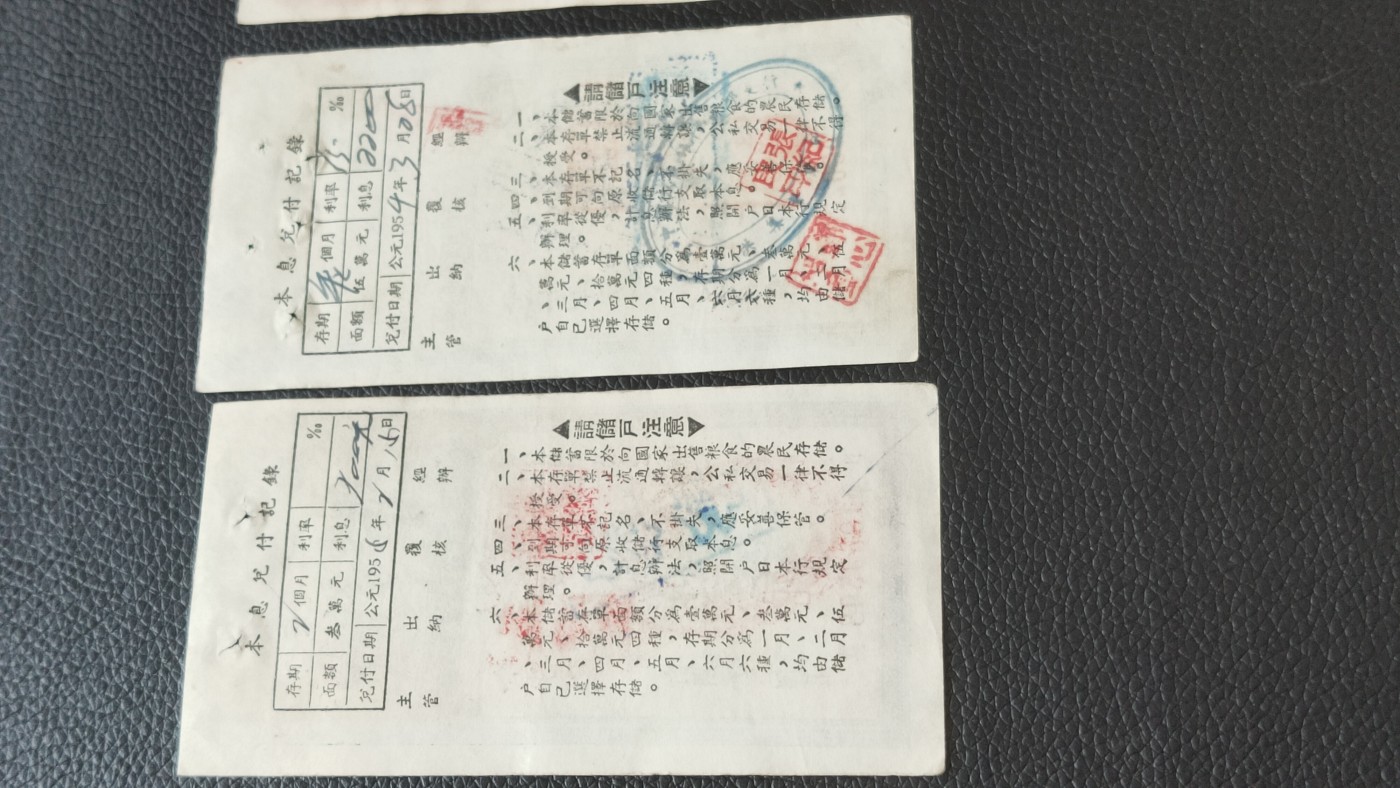 本息兌付記錄
存期 個月 利率 ‰
面額 伍萬元 利息 2200
兌付日期 公元1954年3月28日
主管 出納 覆核 經辦
請儲戶注意
一、本儲蓄限於向國家出售粮食的農民存儲。
二、本存單禁止流通轉讓，公私交易一律不得
授受。
三、本存單不記名、不掛失，應妥善保管。
四、到期可向原收儲行支取本息。
五、利率從優，計息辦法，照開戶日本行規定
辦理。
六、本儲蓄存單面額分為壹萬元、叁萬元、伍
萬元、拾萬元四種，存期分為一月、二月
、三月、四月、五月、六月六種，均由儲
戶自已選擇存儲。
本息兌付記錄
存期 2個月 利率 ‰
面額 叁萬元 利息
兌付日期 公元195 年2月16日
主管 出納 覆核 經辦
請儲戶注意
一、本儲蓄限於向國家出售粮食的農民存儲。
二、本存單禁止流通轉讓，公私交易一律不得
授受。
三、本存單不記名、不掛失，應妥善保管。
四、到期可向原收儲行支取本息。
五、利率從優，計息辦法，照開戶日本行規定
辦理。
六、本儲蓄存單面額分為壹萬元、叁萬元、伍
萬元、拾萬元四種，存期分為一月、二月
、三月、四月、五月、六月六種，均由儲
戶自已選擇存儲。